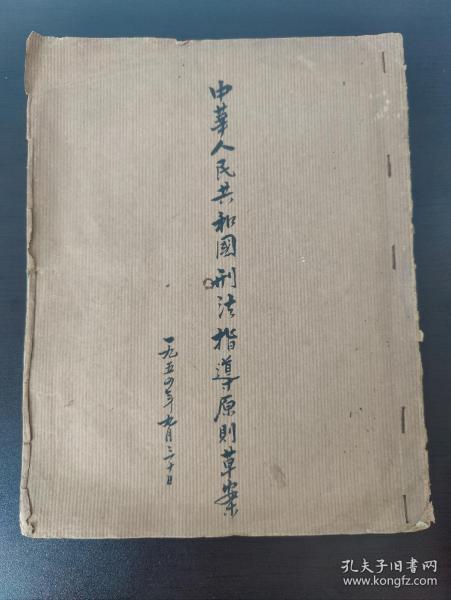 中華人民共和國刑法指導原則草案
一九五四年九月三十日
孔夫子旧书网
www.kongfz.com